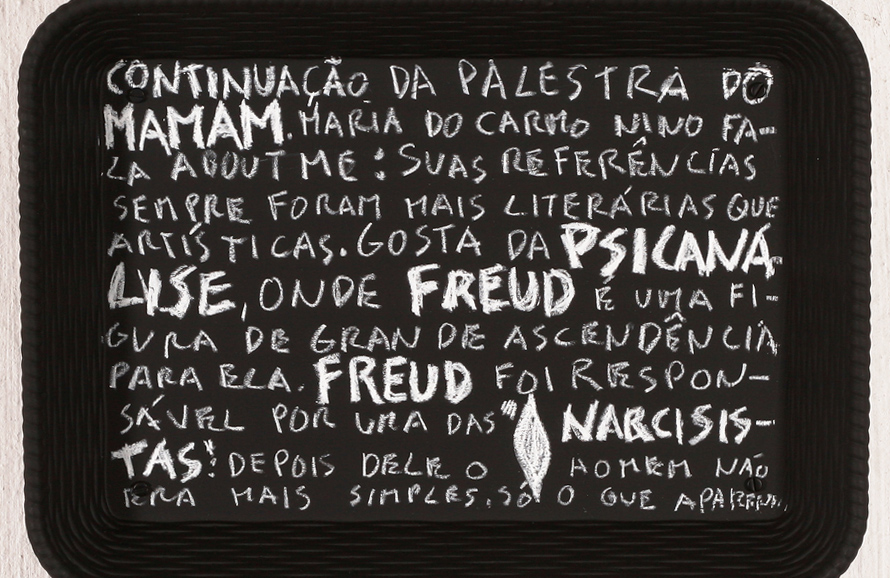 CONTINUAÇÃO DA PALESTRA DO
MAMAM. MARIA DO CARMO NINO FA-
LA ABOUT ME: SUAS REFERÊNCIAS
SEMPRE FORAM MAIS LITERÁRIAS QUE
ARTÍSTICAS. GOSTA DA PSICANÁ
LISE, ONDE FREUD É UMA FI-
GURA DE GRANDE ASCENDÊNCIA
PARA ELA. FREUD FOI RESPON-
SÁVEL POR UMA DAS "NARCISIS-
TAS": DEPOIS DELE O HOMEM NÃO
ERA MAIS SIMPLES. SÓ O QUE